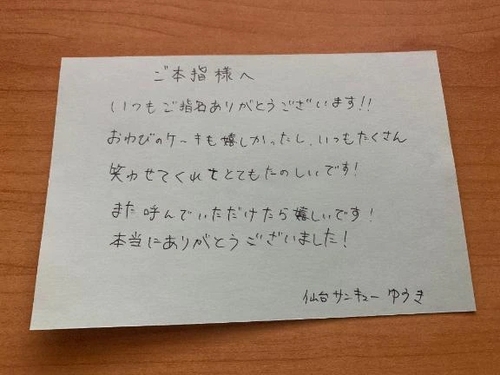 ご本指様へ
いつもご指名ありがとうございます!!
おわびのケーキも嬉しかったし、いつもたくさん
笑わせてくれてとてもたのしいです!
また呼んでいただけたら嬉しいです!
本当にありがとうございました!
仙台サンキュー ゆうき